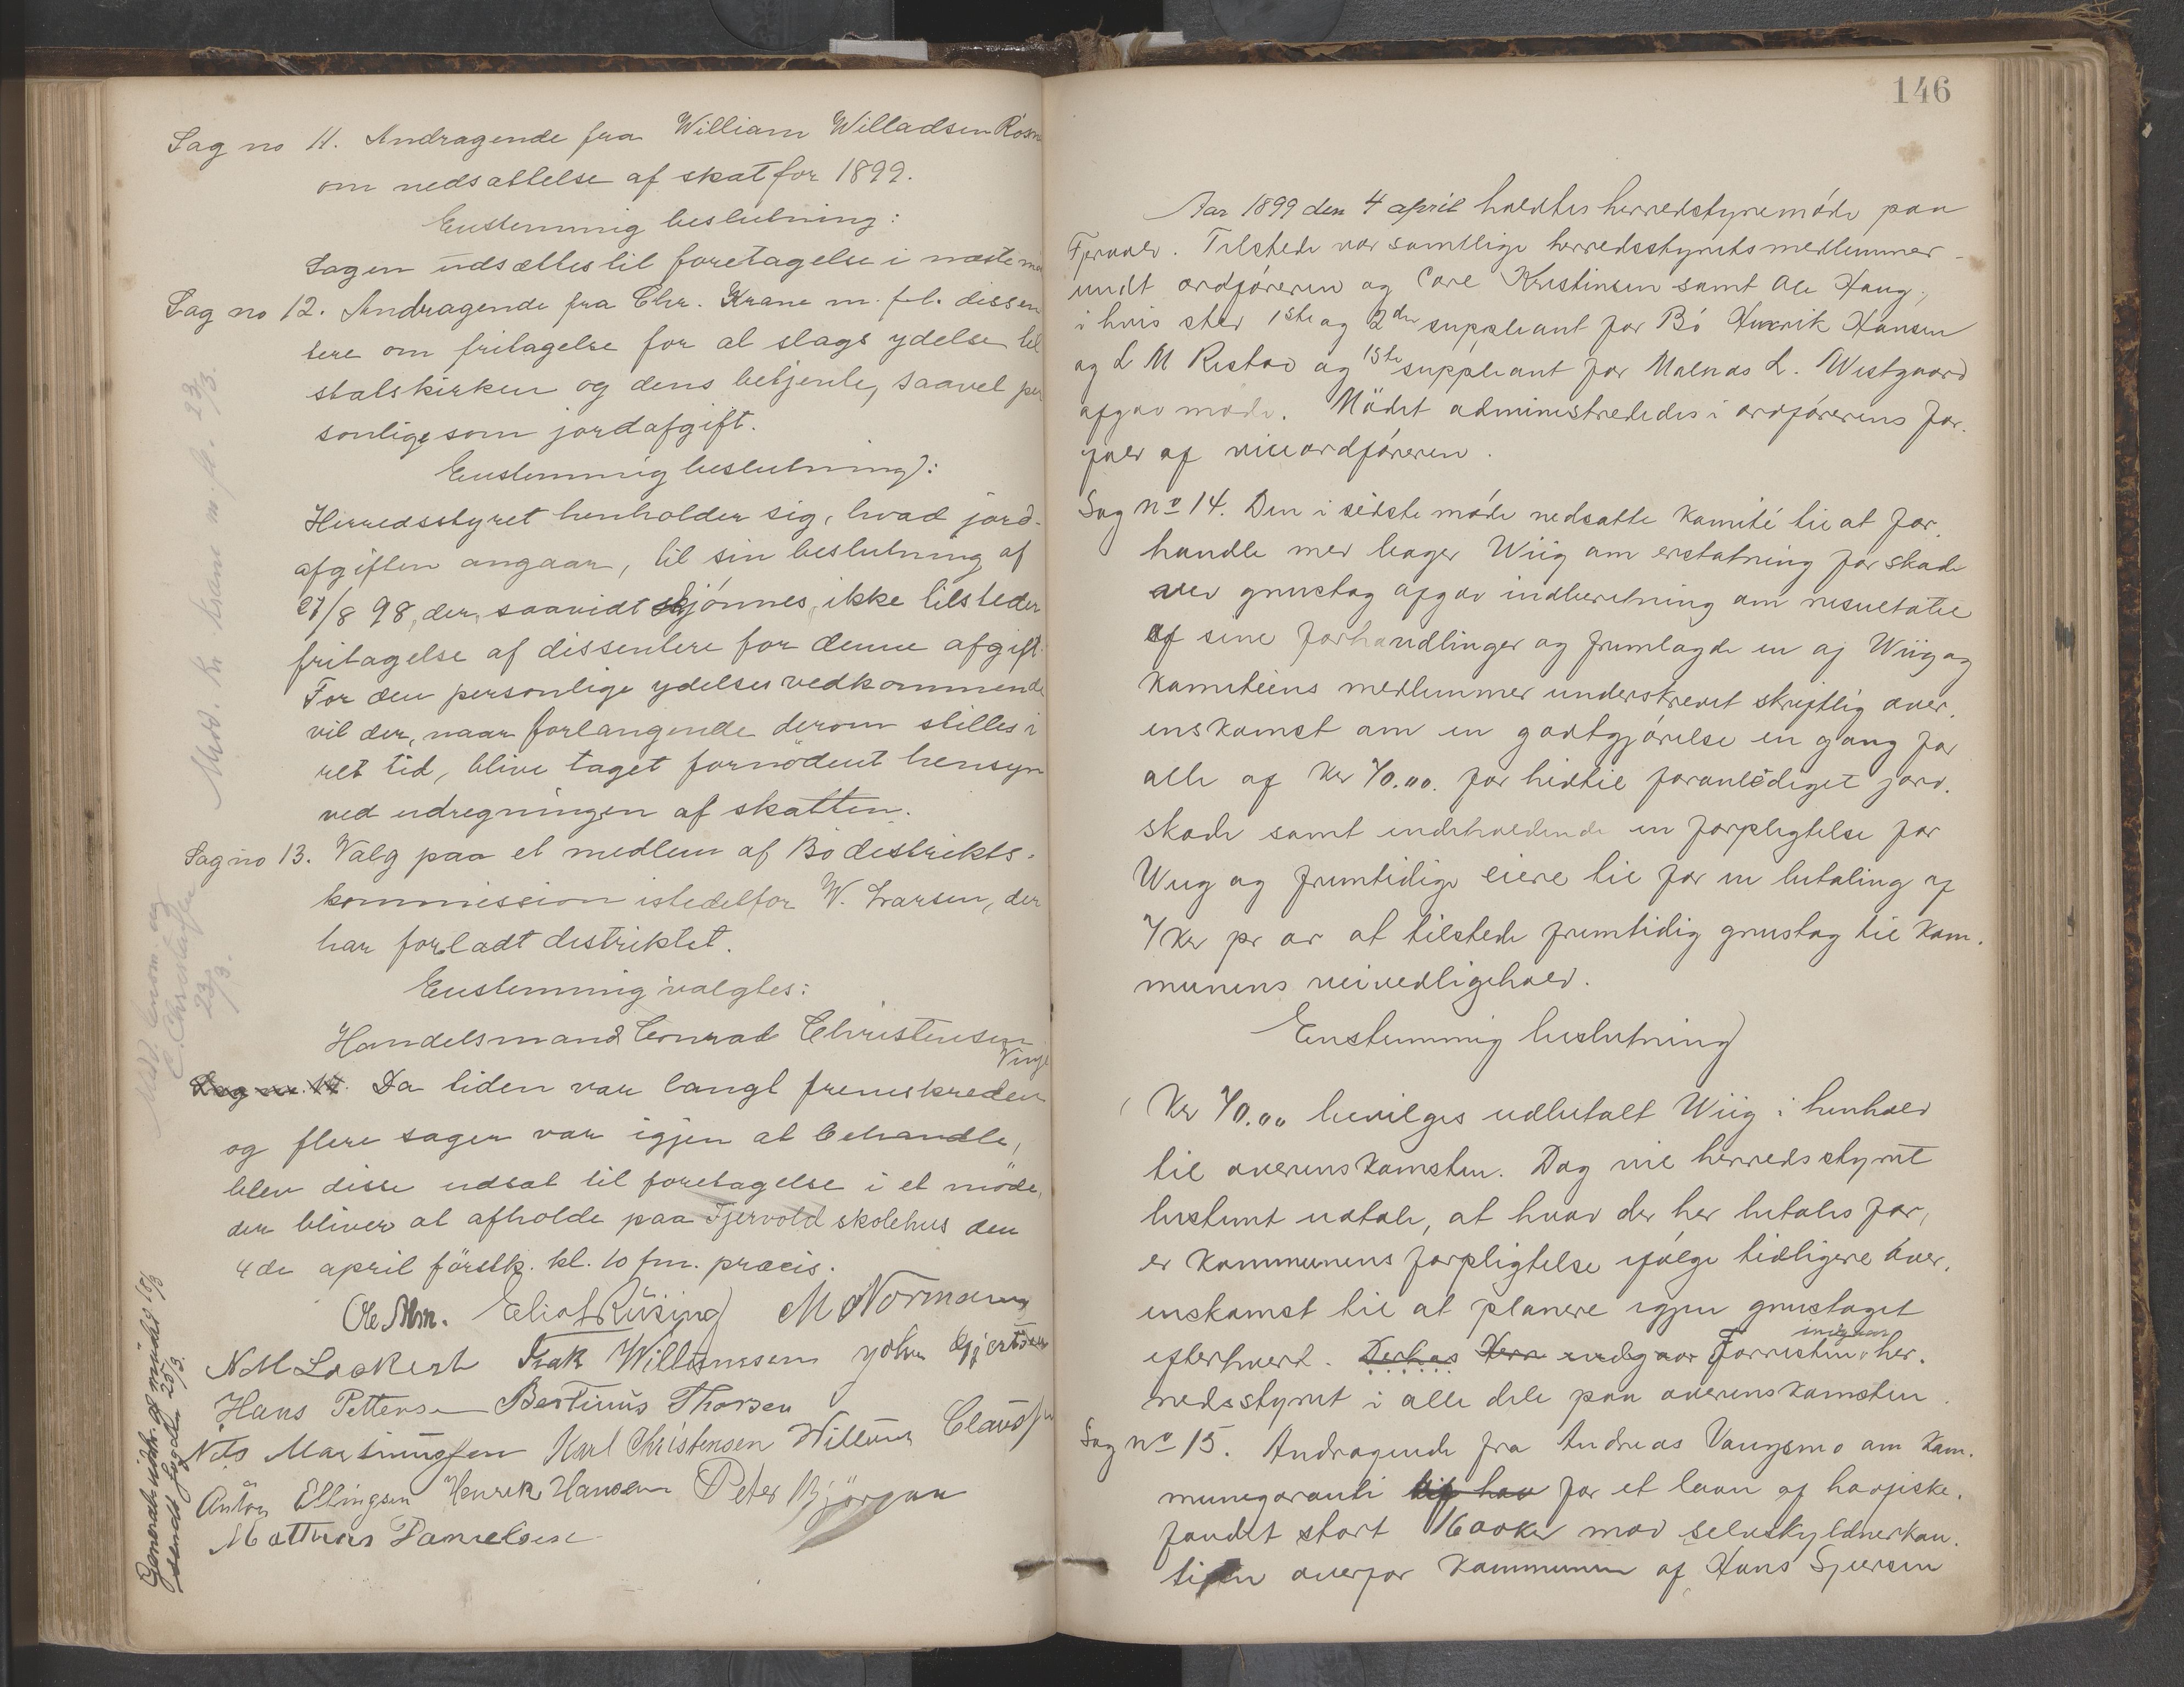 Sag no 11. Andragende fra William Willadsen
om nedsattelse af skat for 1899.
Enstemmig beslutning:
Sagen udsættes til foretagelse i næste
Sag no 12. Andragende fra Chr. Krane m. fl. dissen
tere om fritagelse for al slags ydelse til
statskirken og dens betjente, saavel per
sonlige som jordafgift.
Enstemmig beslutning:
Herredsstyret henholder sig, hvad jord-
afgiften angaar, til sin beslutning af
27/8 98, der, saavidt skjönnes, ikke tilsteder
fritagelse af dissentere for denne afgift.
For den personlige ydelses vedkommende
vil der, naar forlangende derom stilles i
ret tid, blive taget fornödent hensyn
ved udregningen af skatten.
Sag no 13. Valg paa et medlem af Bö distrikts-
kommission istedetfor W. Larsen, der
har forladt distriktet.
Enstemmig valgtes:
Handelsmand Conrad Christensen
Vinje
Sag no. 14. Da tiden var langt fremskreden
og flere sager var igjen at behandle,
blev disse udsat til foretagelse i et möde,
der bliver at afholde paa Fjervold skolehus den
4de april förstk. kl. 10 fm. præcis.
Eliot Rüsing M Normann
N M Lockert Isak Willumsen John Gjertsen
Hans Pettersen Bertinus Thorsen
Nils Martinussen Karl Christensen Willum Claus
Anton Ellingsen Henrik Hansen Peter Björgan
Mathias Danielsen
Medd. Kr. Krane m. fl. 23/3.
C. Christensen
23/3.
146
Aar 1899 den 4 april holdtes herredstyremöde paa
Fjervold. Tilstede var samtlige herredsstyrets medlemmer -
undt ordföreren og Core Kristensen samt Ole Haug,
i hvis sted 1ste og 2den suppleant for Bö Henrik Hansen
og L M Ristad og 1ste suppleant for Malnes L. Westgaard
afgav möde. Mödet administreredes i ordförerens for-
fald af viceordföreren.
Sag no 14. Den i sidste möde nedsatte komité til at for-
handle med lager Wiig om erstatning for skade
ved grustag afgav indberetning om resultatet
af sine forhandlinger og fremlagde en af Wiig og
komiteens medlemmer underskrevet skriftlig over-
enskomst om en godtgjörelse en gang for
alle af Kr 70.00. for hidtil foranlediget jord-
skade samt indeholdende en forpligtelse for
Wiig og fremtidige eiere til for en betaling af
7 Kr pr ar at tilstede fremtidig grustag til kom-
munens veivedligehold.
Enstemmig beslutning
Kr 70.00 bevilges udbetalt Wiig i henhold
til overenskomsten. Dog vil herredsstyret
bestemt udtale, at hvad der her betales for,
er kommunens forpligtelse ifölge tidligere över-
enskomst til at planere igjen grustaget
efterhvert. indgaar Forresten her-
indgaar
redsstyret i alle dele paa overenskomsten.
Sag no 15. Andragende fra Andreas Vangsmo om kom-
munegaranti for et laan af havfiske-
fondet stort 1600 Kr mod selvskyldnerkau-
tion overfor kommunen af Hans Sjursen